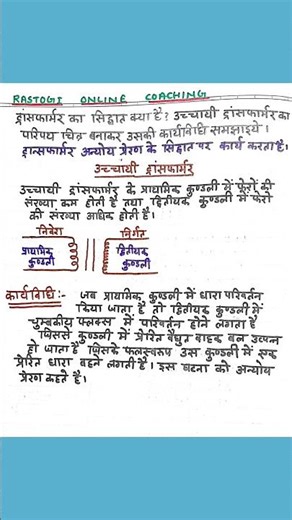 RASTOGI ONLINE COACHING
ट्रांसफार्मर का सिद्धांत क्या है? उच्चायी ट्रांसफार्मर का
परिपथ चित्र बनाकर उसकी कार्यविधि समझाइये।
ट्रान्सफार्मर अन्योय प्रेरण के सिद्धांत पर कार्य करता है।
उच्चायी ट्रांसफार्मर
उच्चायी ट्रांसफार्मर के प्राथमिक कुण्डली में फेरों की
संख्या कम होती है तथा द्वितीयक कुण्डली में फेरों
की संख्या अधिक होती है।
निवेश निर्गत
प्राथमिक कुण्डली
द्वितीयक कुण्डली
कार्यविधि:- जब प्राथमिक कुण्डली में धारा परिवर्तन
किया जाता है तो द्वितीयक कुण्डली में
चुम्बकीय फ्लक्स में परिवर्तन होने लगता है
जिससे कुण्डली में प्रेरित वैधुत वाहक बल उत्पन्न
हो जाता है जिसके फलस्वरूप उस कुण्डली में एक
प्रेरित धारा बहने लगती है। इस घटना को अन्योय
प्रेरण कहते है।